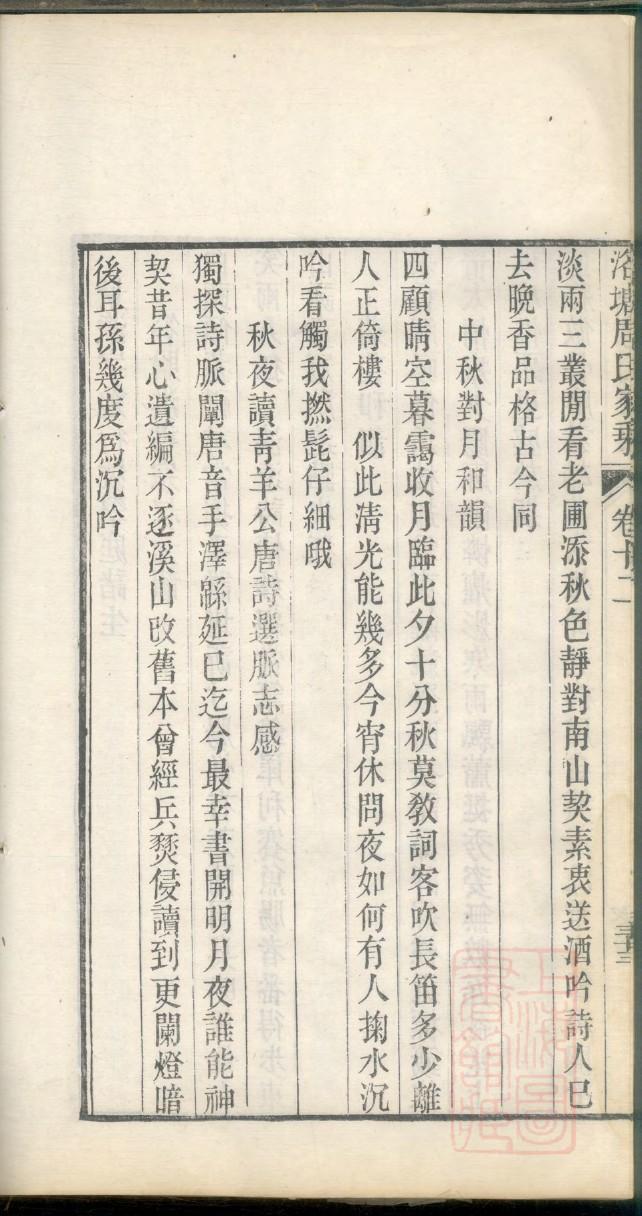 洛塘周氏家乘 卷十二
淡兩三叢閒看老圃添秋色靜對南山契素衷送酒吟詩人已
去晚香品格古今同
中秋對月和韻
四顧晴空暮靄收月臨此夕十分秋莫敎詞客吹長笛多少離
人正倚樓　似此淸光能幾多今宵休問夜如何有人掬水沉
吟看觸我撚髭仔細哦
秋夜讀靑羊公唐詩選脈志感
獨探詩脈闡唐音手澤緜延已迄今最幸書開明月夜誰能神
契昔年心遺編不逐溪山改舊本曾經兵燹侵讀到更闌燈暗
後耳孫幾度爲沉吟